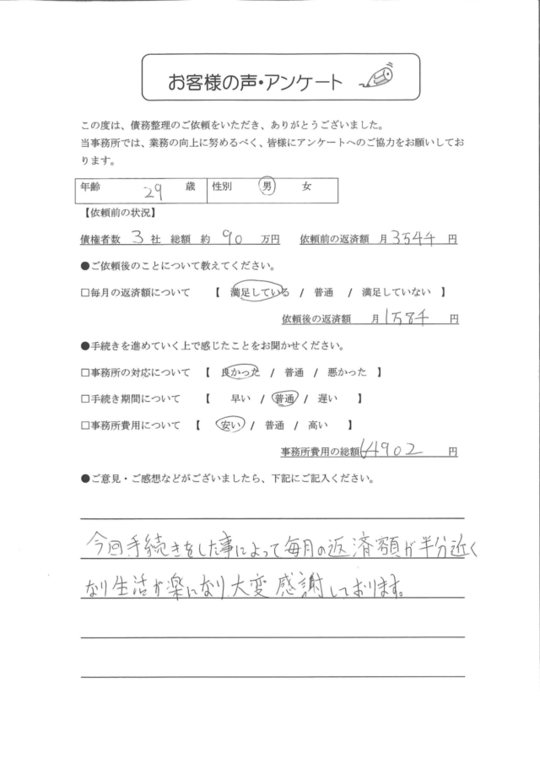 お客様の声・アンケート
この度は、債務整理のご依頼をいただき、ありがとうございました。
当事務所では、業務の向上に努めるべく、皆様にアンケートへのご協力をお願いしてお
ります。
年齢 29 歳 性別 男 女
【依頼前の状況】
債権者数 3 社 総額 約 90 万円 依頼前の返済額 月 3万4千 円
●ご依頼後のことについて教えてください。
□毎月の返済額について 【 満足している / 普通 / 満足していない 】
依頼後の返済額 月 1万8千 円
●手続きを進めていく上で感じたことをお聞かせください。
□事務所の対応について 【 良かった / 普通 / 悪かった 】
□手続き期間について 【 早い / 普通 / 遅い 】
□事務所費用について 【 安い / 普通 / 高い 】
事務所費用の総額 64902 円
●ご意見・ご感想などがございましたら、下記にご記入ください。
今回手続きをした事によって毎月の返済額が半分近く
なり生活が楽になり、大変感謝しております。